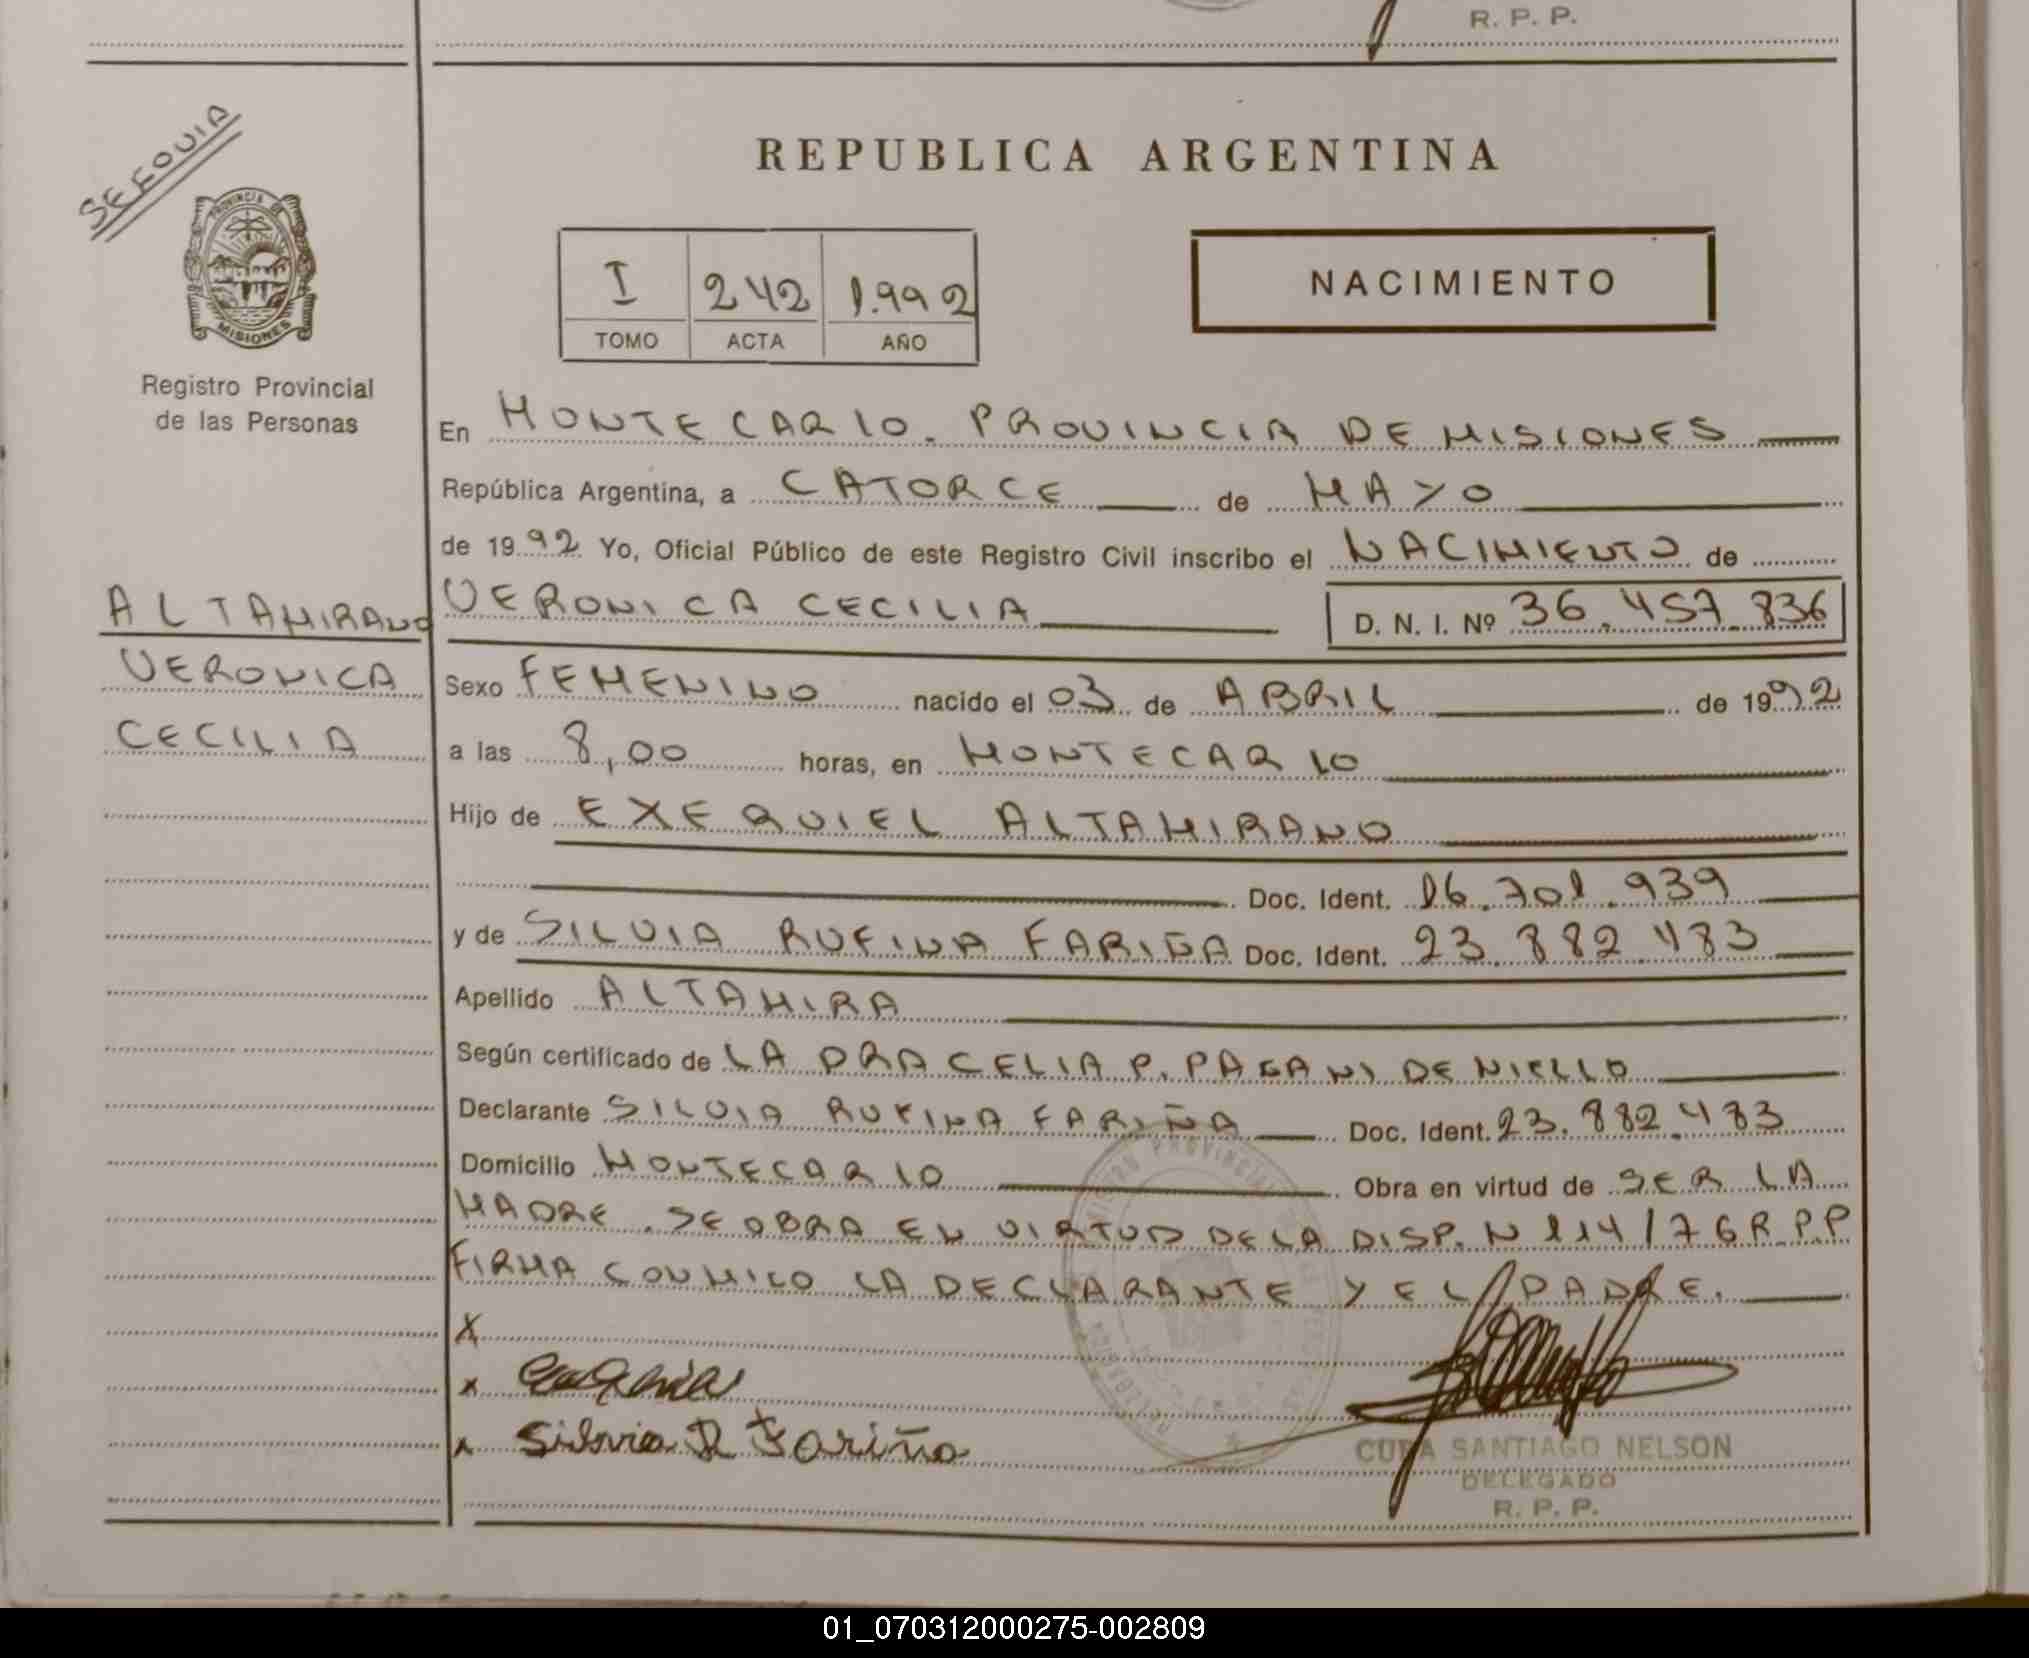 R. P. P.
SEEOUIA
PROVINCIA DE
MISIONES
Registro Provincial
de las Personas
REPUBLICA ARGENTINA
I 242 1.992
TOMO ACTA AÑO
NACIMIENTO
En MONTECARLO. PROVINCIA DE MISIONES
República Argentina, a CATORCE de MAYO
de 1992 Yo, Oficial Público de este Registro Civil inscribo el NACIMIENTO de
ALTAMIRANO
VERONICA
CECILIA
VERONICA CECILIA D. N. I. Nº 36.457.836
Sexo FEMENINO nacido el 03 de ABRIL de 1992
a las 8,00 horas, en MONTECARLO
Hijo de EXEQUIEL ALTAMIRANO
Doc. Ident. 16.701.939
y de SILVIA RUFINA FARIÑA Doc. Ident. 23.882.483
Apellido ALTAMIRA
Según certificado de LA DRA CELIA P. PAGANI DE NIELLO
Declarante SILVIA RUFINA FARIÑA Doc. Ident. 23.882.483
Domicilio MONTECARLO Obra en virtud de SER LA
MADRE. SE OBRA EN VIRTUD DE LA DISP. N 114/76 R.P.P
FIRMA CONMIGO LA DECLARANTE Y EL PADRE.
X
x
x Silvia R Fariña
CUBA SANTIAGO NELSON
DELEGADO
R. P. P.
01_070312000275-002809